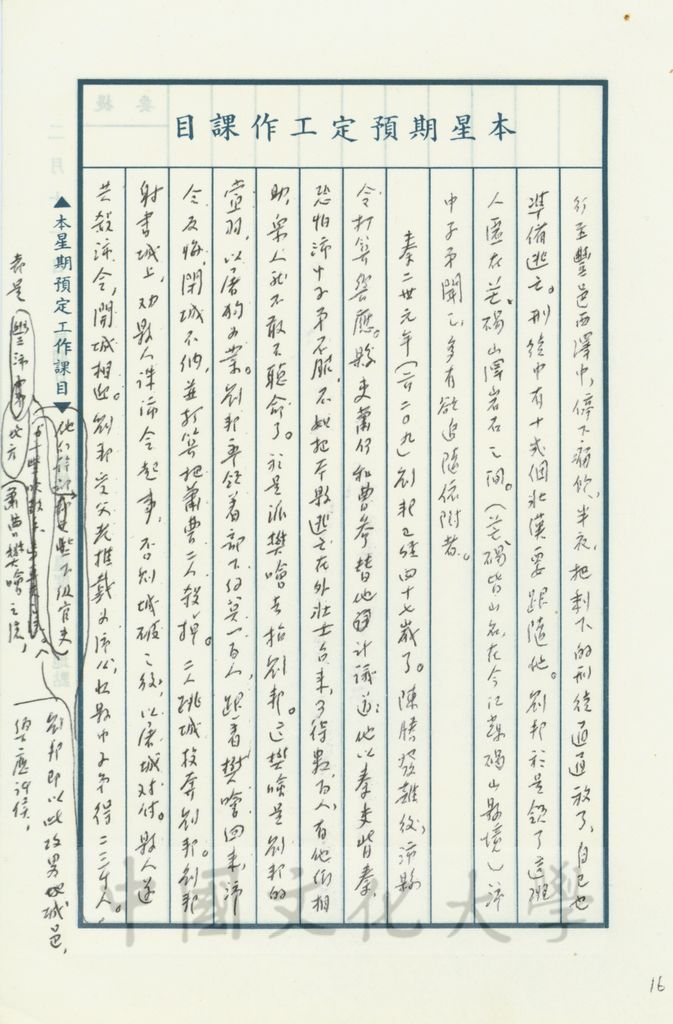 本星期預定工作課目
行至豐邑西澤中，停下痛飲，半夜，把剩下的刑徒通通放了，自己也
準備逃亡。刑徒中有十式個壯漢要跟隨他。劉邦於是領了這班
人匿在芒碭山澤岩石之間。（芒碭皆山名，在今江蘇碭山縣境）沛
中子弟聞之，多有欲追隨依附者。
秦二世元年（前二〇九）劉邦已經四十七歲了。陳勝發難後，沛縣
令打算響應。縣吏蕭何和曹參替他計議道：他以秦吏背秦，
恐怕沛中子弟不服，不如把本縣逃亡在外壯士召來，可得數百人，有他們相
助，眾人就不敢不聽命了。於是派樊噲去招劉邦。這樊噲是劉邦的
黨羽，以屠狗為業。劉邦率領着部下約莫一百人，跟着樊噲回來，沛
令反悔，閉城不納，並打算把蕭曹二人殺掉。二人跳城投奔劉邦。劉邦
射書城上，勸縣人誅沛令起事，否則城破之後，以屠城對付。縣人遂
共殺沛令，開城相迎。劉邦受父老推戴為沛公，收縣中子弟得二三千人。
▲本星期預定工作課目▼
劉邦即以此攻略城邑，
響應諸侯，
蕭曹樊噲之流，
他們都是些下級官吏
豐沛
中國文化大學
16